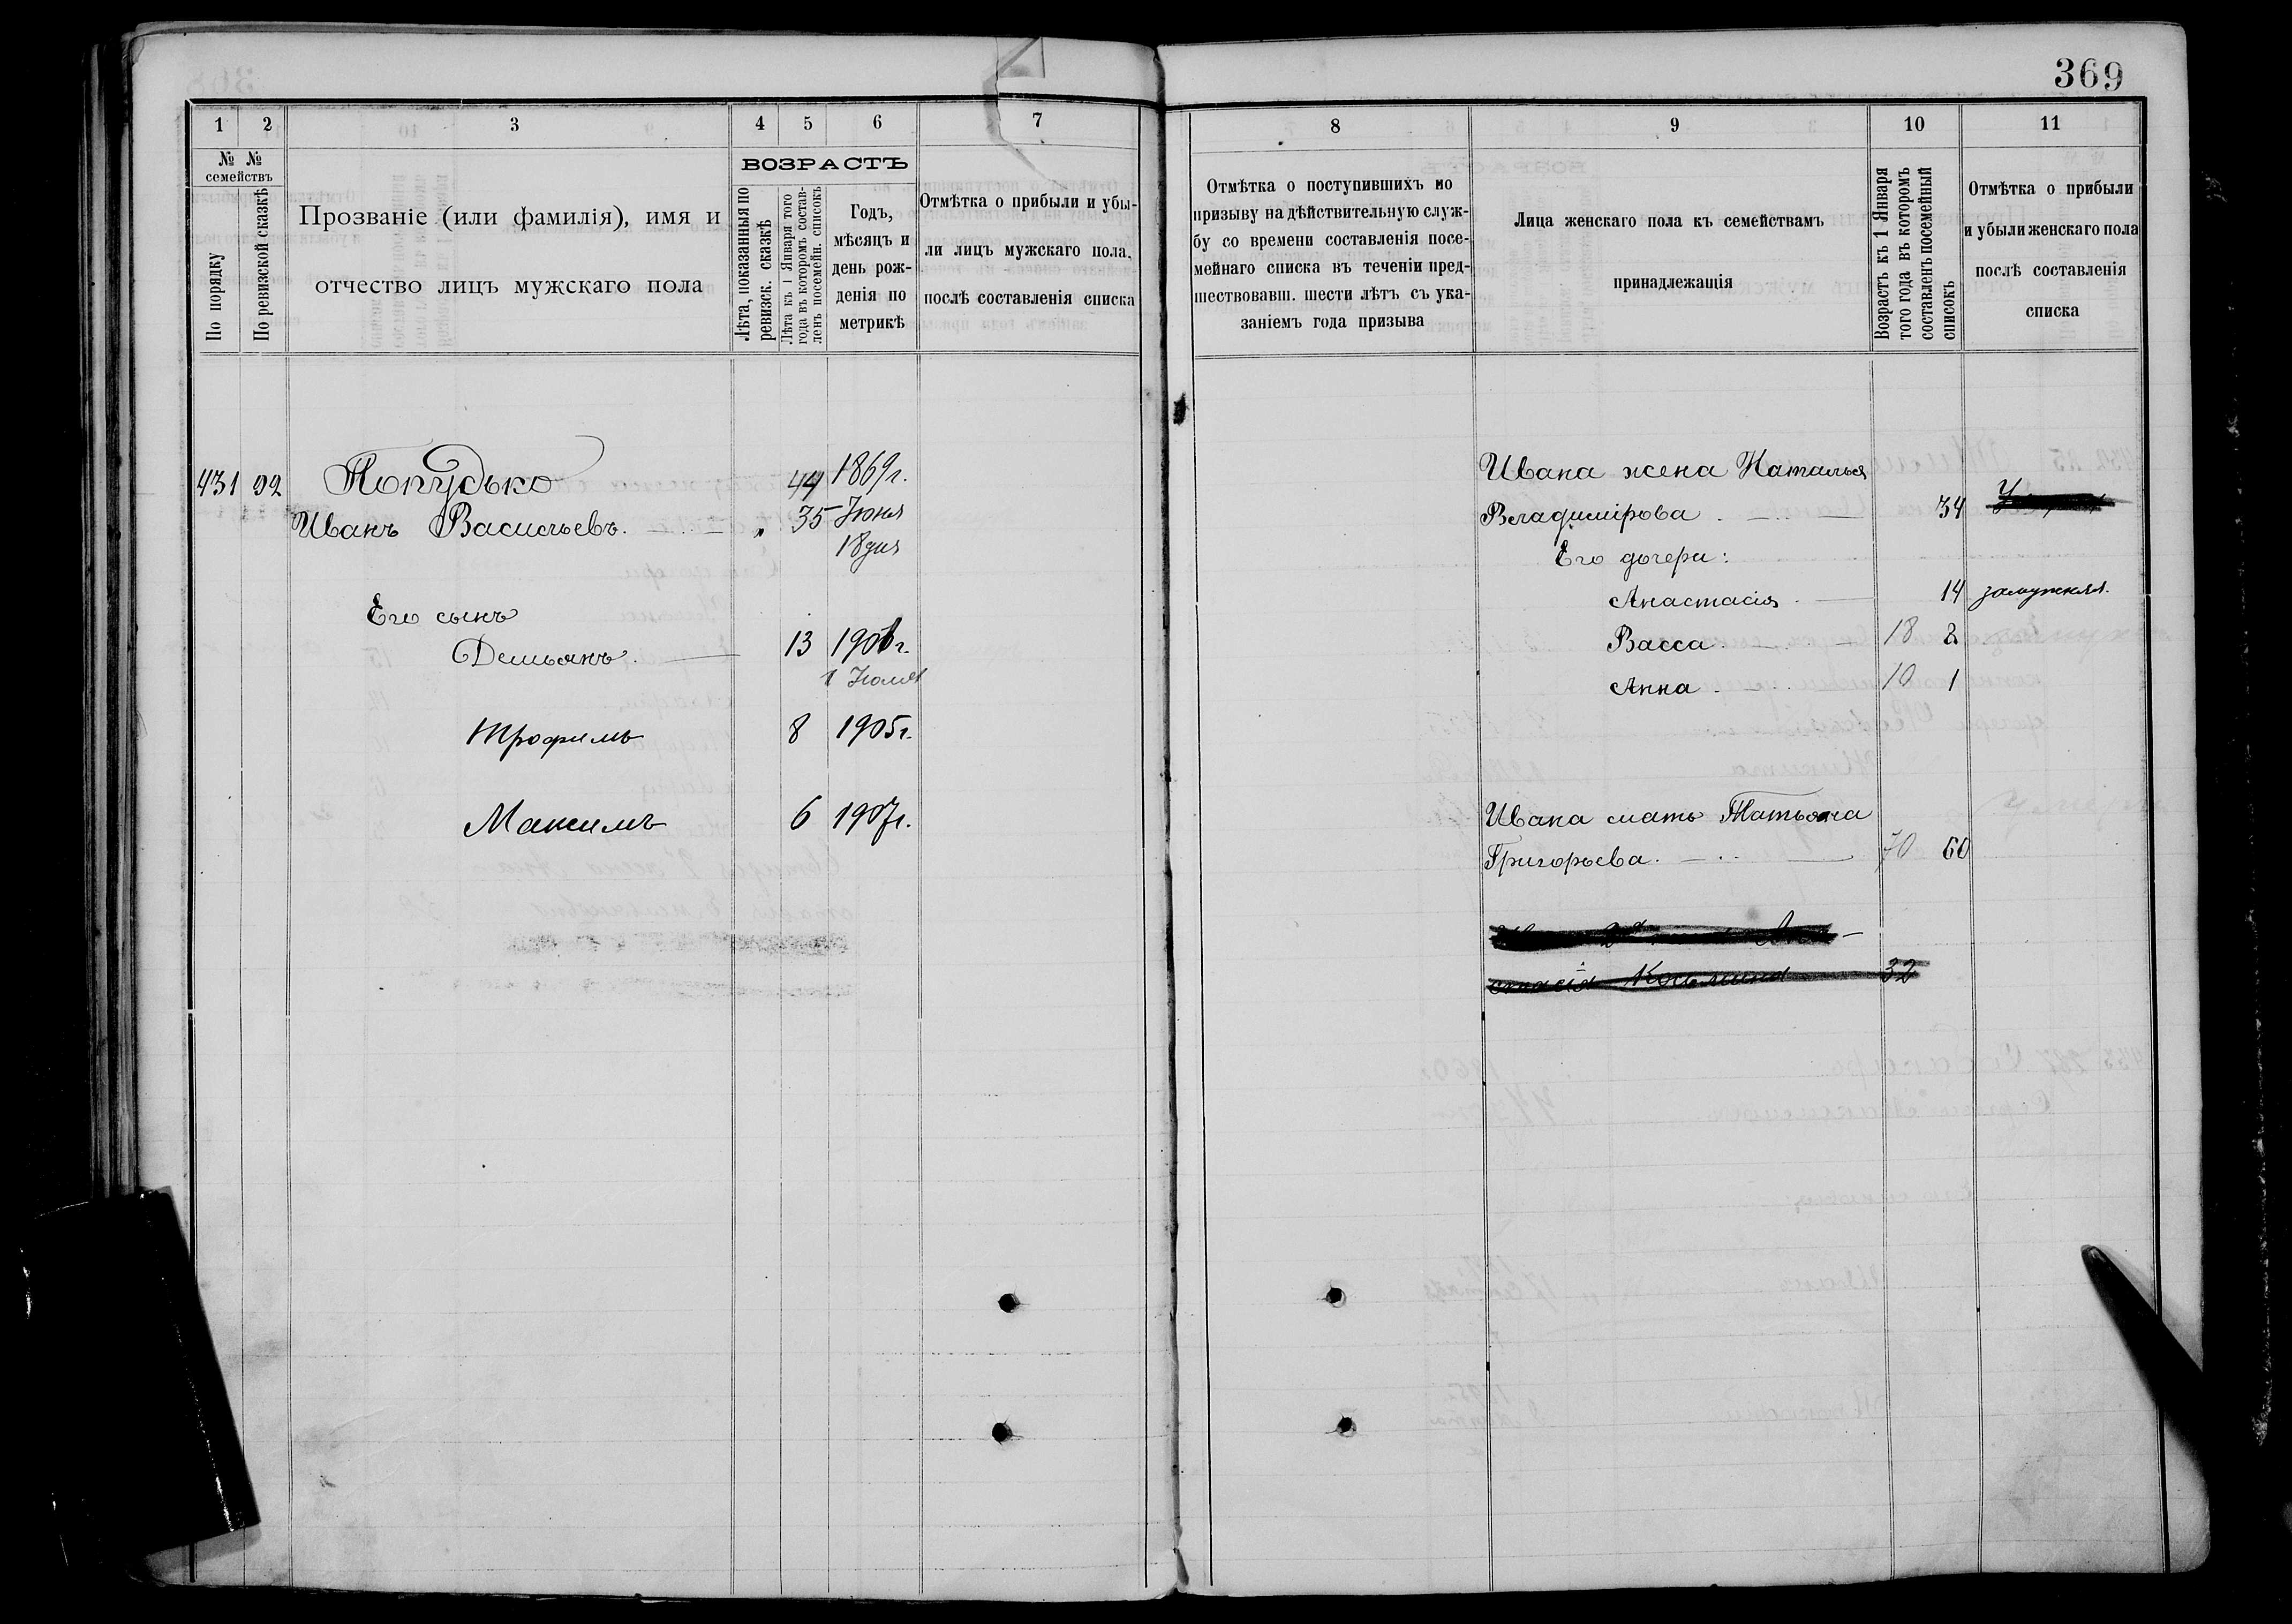 369
1 2 3 4 5 6 7
№ № семействъ
По порядку
По ревизской сказкѣ
Прозваніе (или фамилія), имя и
отчество лицъ мужскаго пола
ВОЗРАСТЪ
Лѣта, показанныя по
ревизск. сказкѣ
Лѣта къ 1 Января того
года въ которомъ состав-
ленъ посемейн. списокъ
Годъ,
мѣсяцъ и
день рож-
денія по
метрикѣ
Отмѣтка о прибыли и убы-
ли лицъ мужскаго пола,
послѣ составленія списка
431 92 Попудько 44 1869г.
Иванъ Васильевъ. „ 35 Іюня
18 дня
Его сынъ
Демьянъ. 13 1901г.
1 Іюля
Трофимъ 8 1905г.
Максимъ 6 1907г.
8 9 10 11
Отмѣтка о поступившихъ по
призыву на дѣйствительную служ-
бу со времени составленія посе-
мейнаго списка въ теченіи пред-
шествовавш. шести лѣтъ съ ука-
заніемъ года призыва
Лица женскаго пола къ семействамъ
принадлежащія
Возрастъ къ 1 Января
того года въ которомъ
составленъ посемейный
списокъ
Отмѣтка о прибыли
и убыли женскаго пола
послѣ составленія
списка
Ивана жена Наталья
Владимірова 34
Его дочери:
Анастасія 14 замужняя.
Васса 18 2
Анна 10 1
Ивана мать Татьяна
Григорьева. 70 60
Козьмина 32